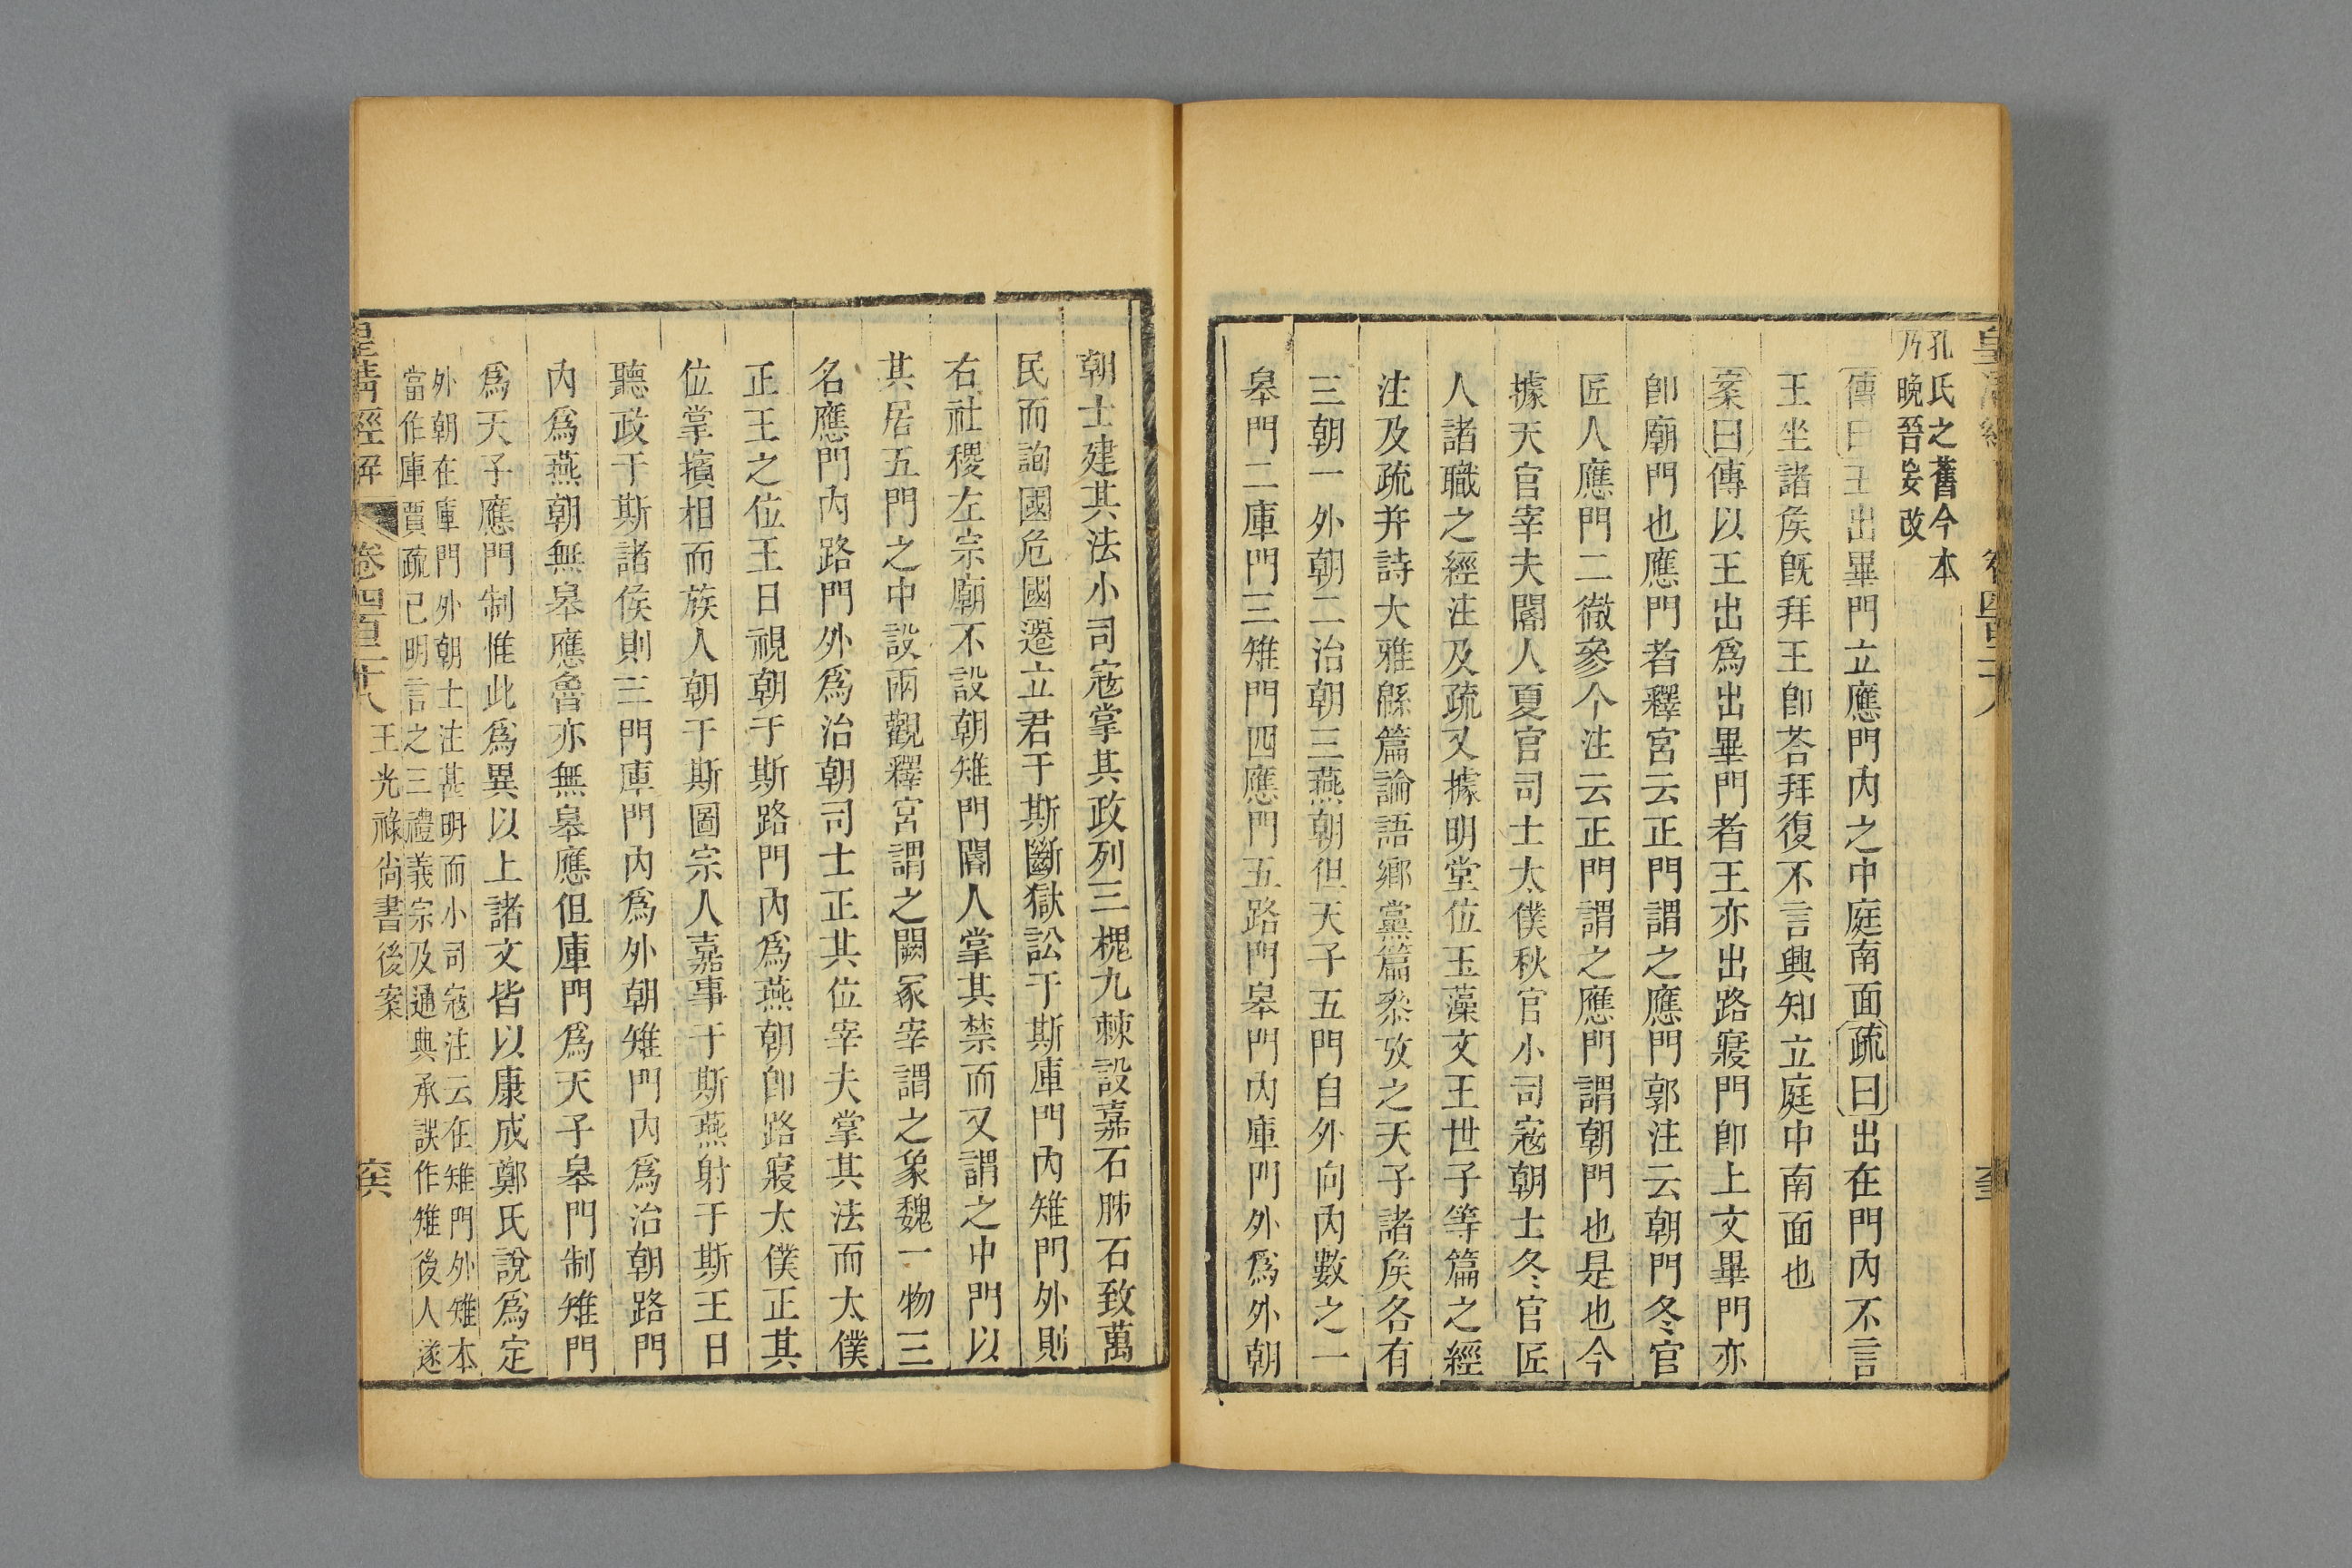 孔氏之舊今本
乃晚晉妄改
傳曰王出畢門立應門內之中庭南面疏曰出在門內不言
王坐諸矦旣拜王卽荅拜復不言興知立庭中南面也
案曰傳以王出爲出畢門者王亦出路寢門卽上文畢門亦
卽廟門也應門者釋宮云正門謂之應門郭注云朝門冬官
匠人應門二徹參个注云正門謂之應門謂朝門也是也今
據天官宰夫閽人夏官司士太僕秋官小司寇朝士冬官匠
人諸職之經注及疏又據明堂位玉藻文王世子等篇之經
注及疏并詩大雅緜篇論語鄉黨篇叅攷之天子諸矦各有
三朝一外朝二治朝三燕朝但天子五門自外向內數之一
皋門二庫門三雉門四應門五路門皋門內庫門外爲外朝
朝士建其法小司寇掌其政列三槐九棘設嘉石肺石致萬
民而詢國危國遷立君于斯斷獄訟于斯庫門內雉門外則
右社稷左宗廟不設朝雉門閽人掌其禁而又謂之中門以
其居五門之中設兩觀釋宮謂之闕冢宰謂之象魏一物三
名應門內路門外爲治朝司士正其位宰夫掌其法而太僕
正王之位王日視朝于斯路門內爲燕朝卽路寢太僕正其
位掌擯相而族人朝于斯圖宗人嘉事于斯燕射于斯王日
聽政于斯諸侯則三門庫門內爲外朝雉門內爲治朝路門
內爲燕朝無皋應魯亦無皋應但庫門爲天子皋門制雉門
爲天子應門制惟此爲異以上諸文皆以康成鄭氏說爲定
外朝在庫門外朝士注甚明而小司寇注云在雉門外雉本
當作庫賈疏已明言之三禮義宗及通典承誤作雉後人遂
皇清經解
卷四百二十八
王光祿尚書後案